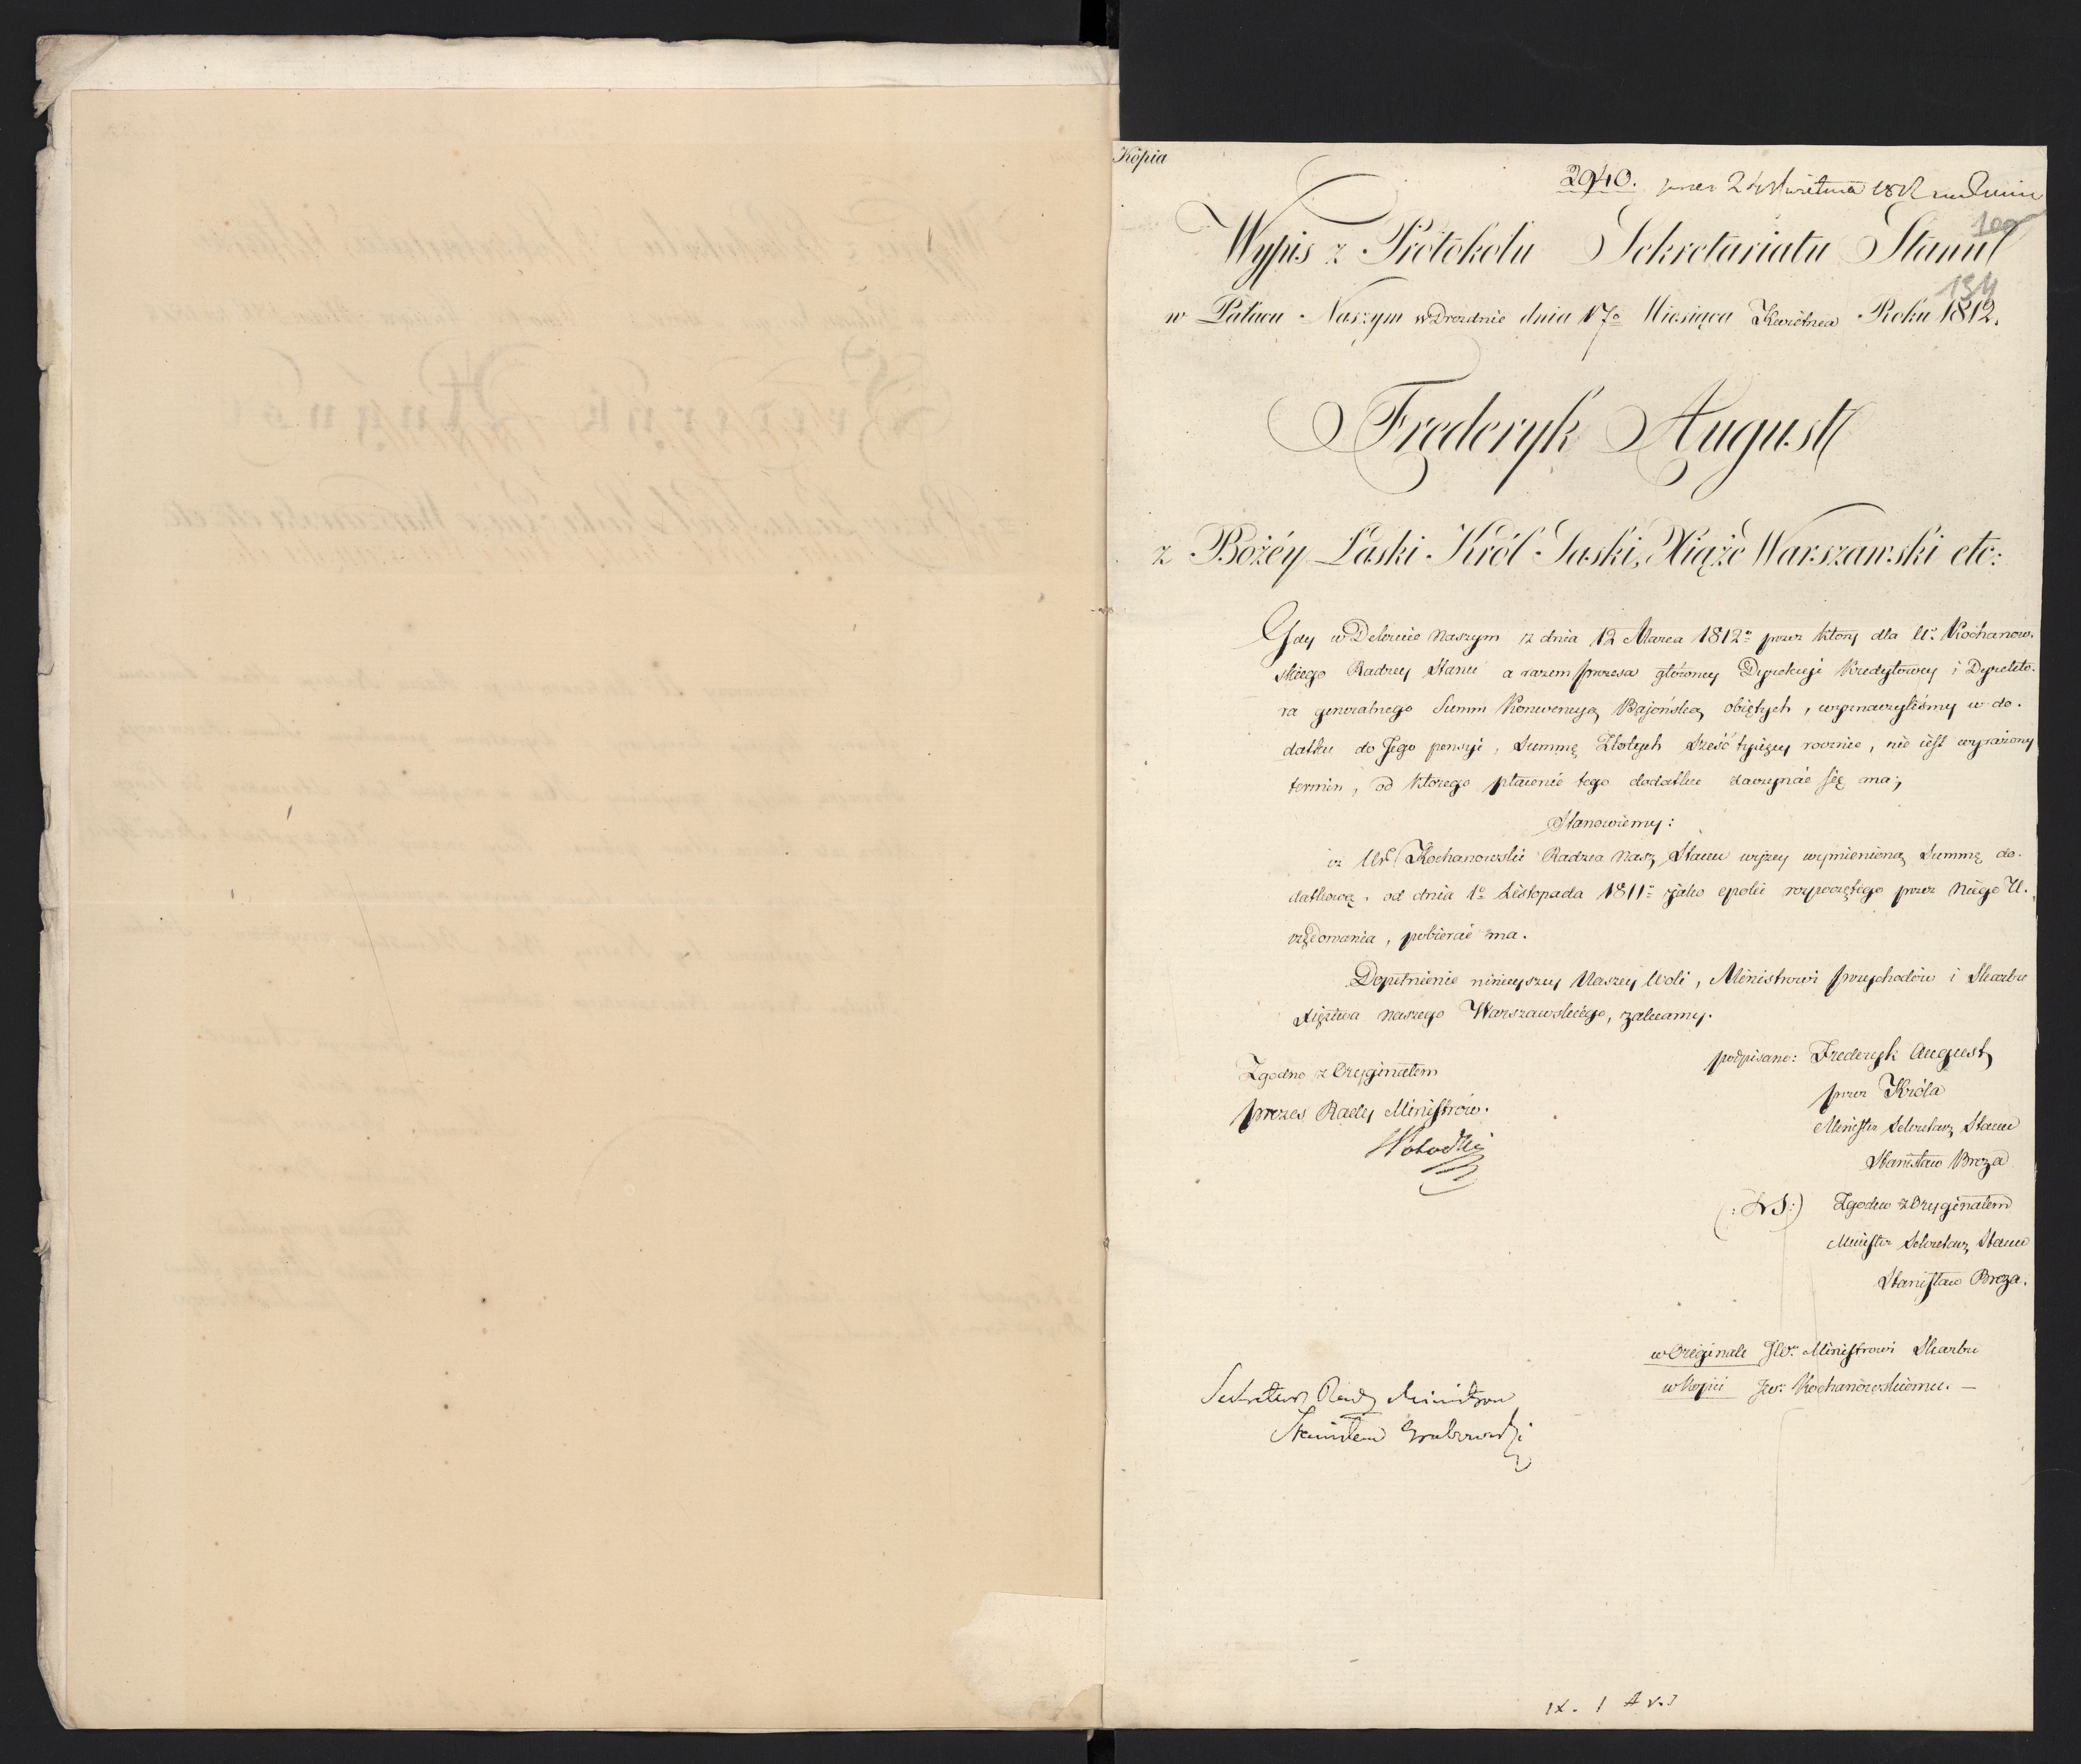 Kopia
2940. 24 Kwietnia 1812
100
Wypis z Protokołu Sekretariatu Stanu
134
w Pałacu Naszym w Dreznie dnia 17º Miesiąca Kwietnia Roku 1812.
Frederyk August
z Bożéy Łaski Król Saski, Xiąże Warszawski etc:
Gdy w Dekrecie Naszym z dnia 12 Marca 1812º przez który dla Ur. Kochanow-
skiego Radzcy Stanu a razem Prezesa głównéy Dyrekcyi Kredytowey i Dyrekto-
ra generalnego Summ Konwencyą Bajońską obiętych, wyznaczyliśmy w do-
datku do Jego pensyi, Summę Złotych Sześć tysięcy rocznie, nie iest wyrażony
termin, od którego płacenie tego dodatku zaczynać się ma;
Stanowiemy:
iż Ur. Kochanowski Radzca Nasz Stanu wyżey wymienioną Summę do-
datkową, od dnia 1º Listopada 1811º jako epoki rozpoczętego przez Niego U-
rzędowania, pobierać ma.
Dopełnienie ninieyszey Naszey Woli, Ministrowi Przychodów i Skarbu
Xięztwa Naszego Warszawskiego, zalecamy.
podpisano: Frederyk August
przez Króla
Minister Sekretarz Stanu
Stanisław Breza
(:LS:) Zgodno z Oryginałem
Minister Sekretarz Stanu
Stanisław Breza.
Zgodno z Oryginałem
Prezes Rady Ministrów.
w Originale JW. Ministrowi Skarbu
w Kopii JW. Kochanowskiemu. —
Sekretarz Rady Ministrów
Stanisław Grabowski
IX. 1